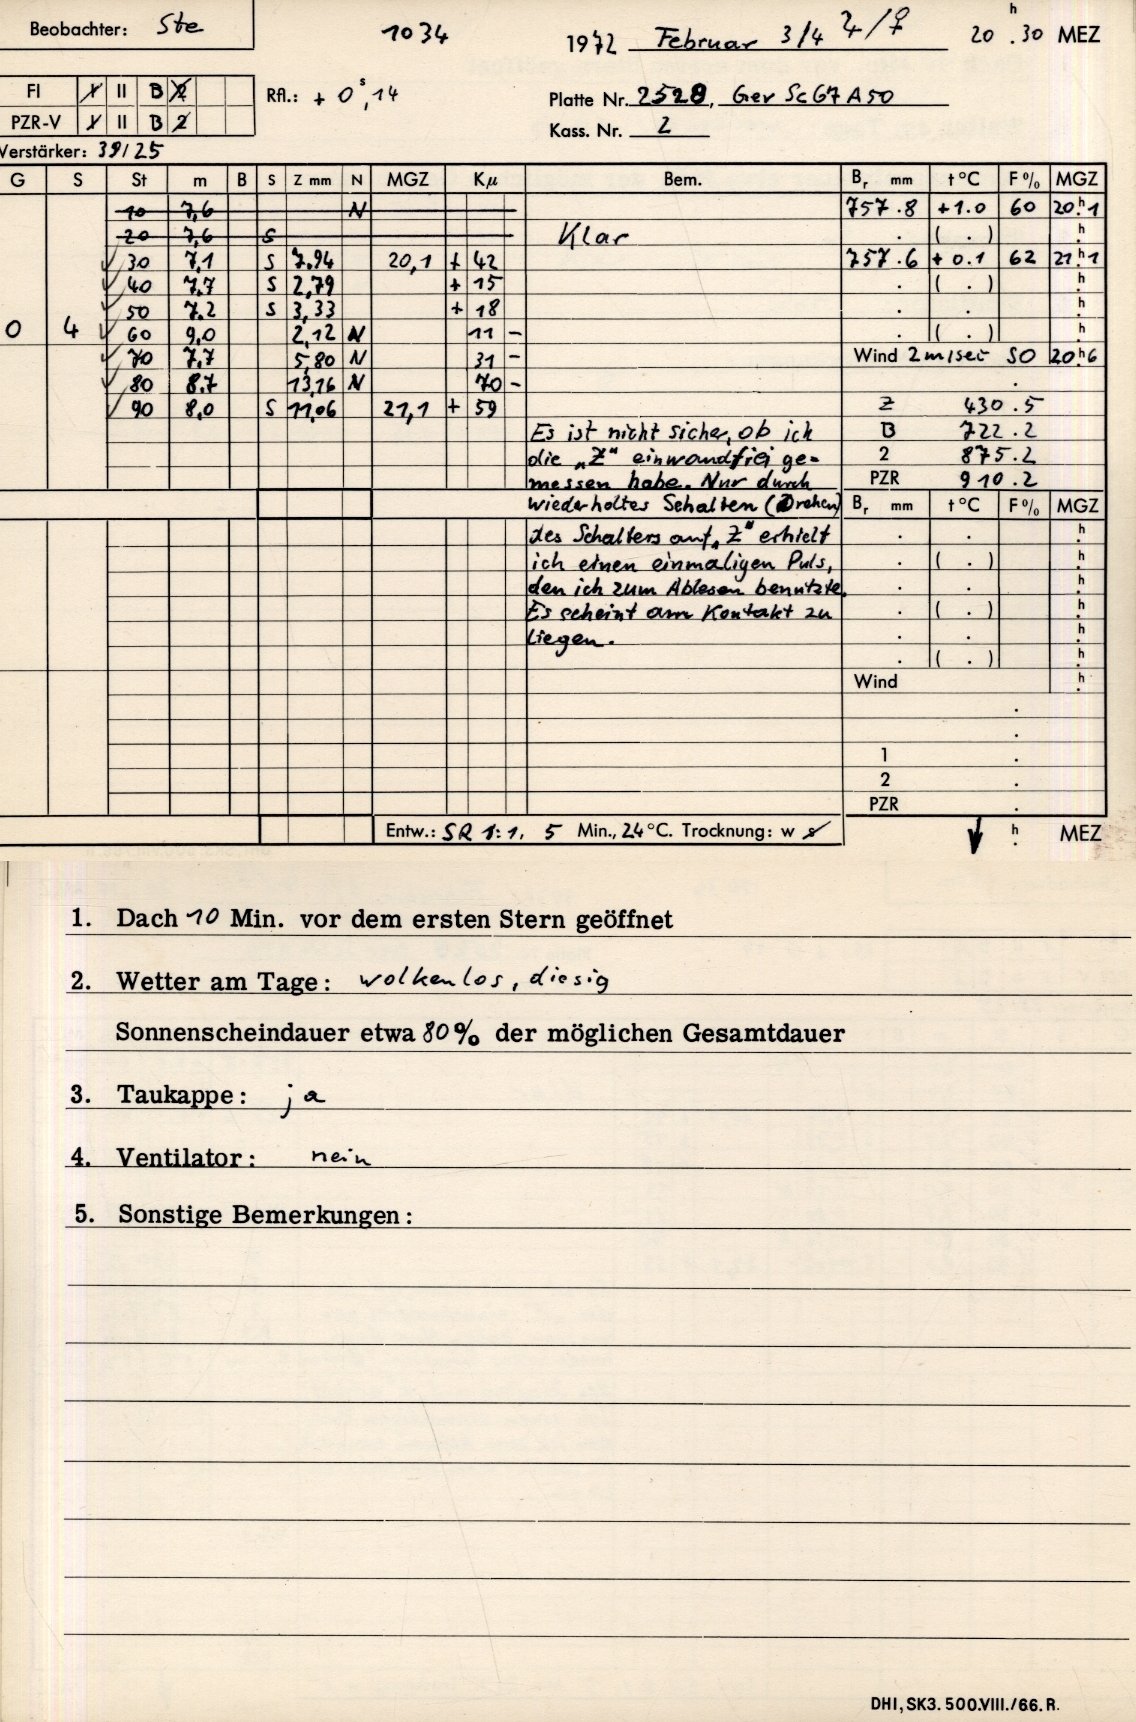 Beobachter: Ste
1034
1972 Februar 3/4 ♃/♀ 20 h . 30 MEZ
FI I II B 2
Rfl.: + 0 s , 14
Platte Nr. 2528, Gev Sc67A50
PZR-V I II B 2
Kass. Nr. 2
Verstärker: 39/25
G S St m B S Z mm N MGZ Kµ Bem. Br mm t °C F % MGZ
10 7,6 N 757.8 +1.0 60 20 h 1
20 7,6 S Klar . ( . ) h
30 7,1 S 7.94 20,1 + 42 757.6 + 0.1 62 21 h 1
40 7,7 S 2,79 + 15 . ( . ) h
50 7.2 S 3,33 + 18 . . h
0 4 60 9,0 2,12 N 11 - . ( . ) h
70 7.7 5,80 N 31 - Wind 2m/sec SO 20 h 6
80 8.7 13,16 N 70 - .
90 8,0 S 11,06 21,1 + 59 Z 430.5
Es ist nicht sicher, ob ich B 722.2
die „Z“ einwandfrei ge- 2 875.2
messen habe. Nur durch PZR 910.2
wiederholtes Schalten (Drehen) Br mm t °C F % MGZ
des Schalters auf „Z“ erhielt . . h
ich einen einmaligen Puls, . ( . ) h
den ich zum Ablesen benutzte. . . h
Es scheint am Kontakt zu . ( . ) h
liegen. . . h
. ( . ) h
Wind h
.
.
1 .
2 .
PZR .
Entw.: SR 1:1, 5 Min., 24 °C. Trocknung: w s
h . MEZ
1. Dach 10 Min. vor dem ersten Stern geöffnet
2. Wetter am Tage: wolkenlos, diesig
Sonnenscheindauer etwa 80% der möglichen Gesamtdauer
3. Taukappe: ja
4. Ventilator: nein
5. Sonstige Bemerkungen:
DHI, SK3. 500.VIII./66. R.